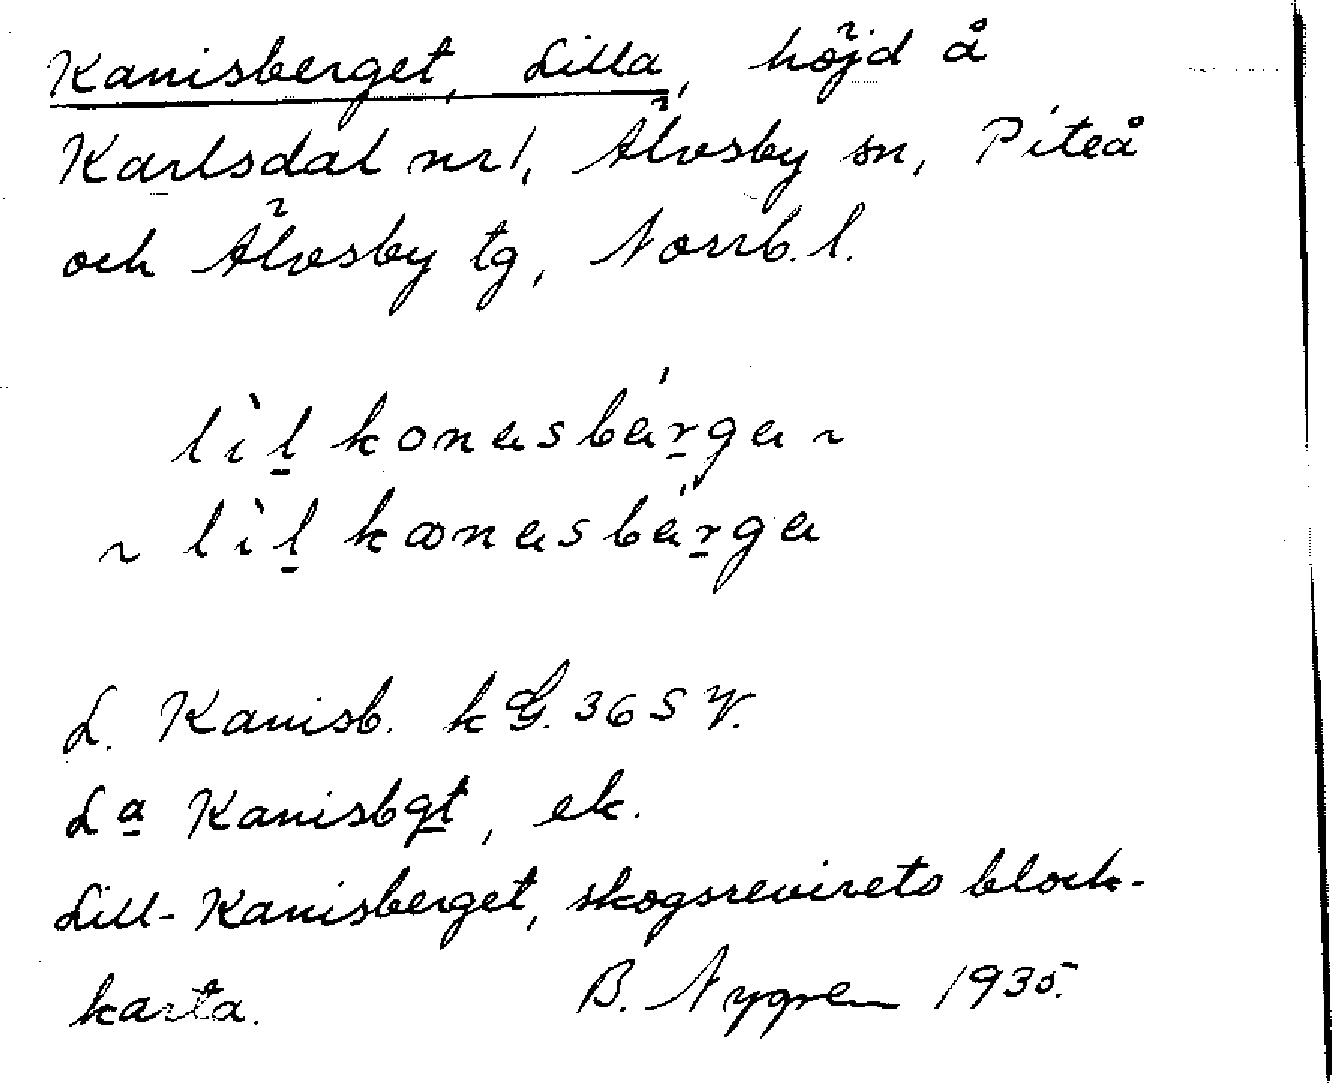 Kanisberget, Lilla, höjd å
Karlsdal nr 1, Älvsby sn, Piteå
och Älvsby tg, Norrb. l.
lìl̠ konɐsbɐ́r̠gɐ ~
~ lìl̠ kɷnɐsbɐ́r̠gɐ
L. Kanisb. k G. 36 S V.
La Kanisbgt, ek.
Lill-Kanisberget, skogsrevirets block-
karta. B. Nygren 1935.